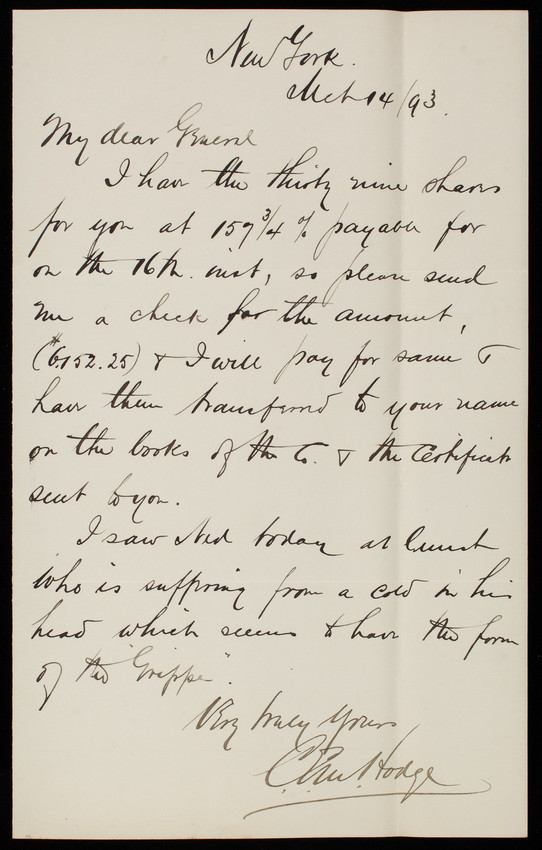 New York.
Mch 14/93.
My dear General
I have the thirty nine shares
for you at 157 3/4 % payable for
on the 16th. inst, so please send
me a check for the amount,
($6152.25) & I will pay for same &
have them transferred to your name
on the books of the Co. & the Certificate
sent to you.
I saw Ned today at lunch
who is suffering from a cold in his
head which seems to have the form
of the "Grippe".
Very truly Yours
Hodge